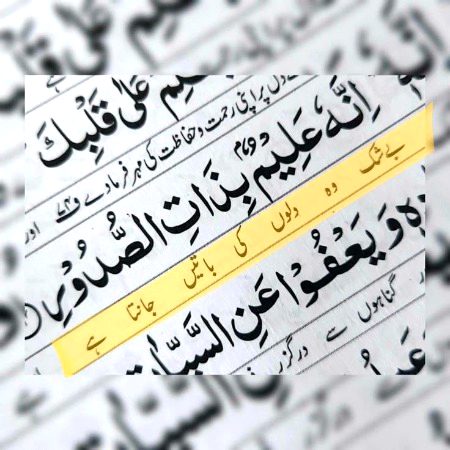 عَلٰى قَلْبِكَ
دل پر اپنی رحمت و حفاظت کی مہر فرما دے اور
اِنَّهٗ عَلِيْمٌۢ بِذَاتِ الصُّدُوْرِ
بے شک وہ دلوں کی باتیں جانتا ہے
وَ يَعْفُوْا عَنِ السَّيِّاٰتِ
گناہوں سے درگزر